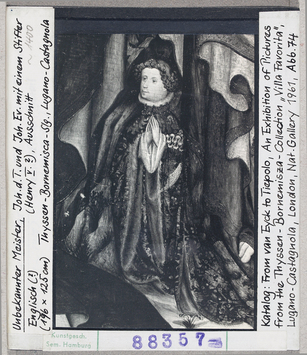 Unbekannter Meister, Joh. d. T. und Joh. Ev. mit einem Stifter
(Henry V. ?), Ausschnitt
~ 1480
Englisch (?)
(176 x 125 cm) Thyssen-Bornemisza-Slg., Lugano-Castagnola
Katalog: From van Eyck to Tiepolo, An Exhibition of Pictures
from the Thyssen-Bornemisza-Collection „Villa Favorita",
Lugano-Castagnola, London, Nat. Gallery 1961, Abb. 74
Kunstgesch.
Sem. Hamburg
88357